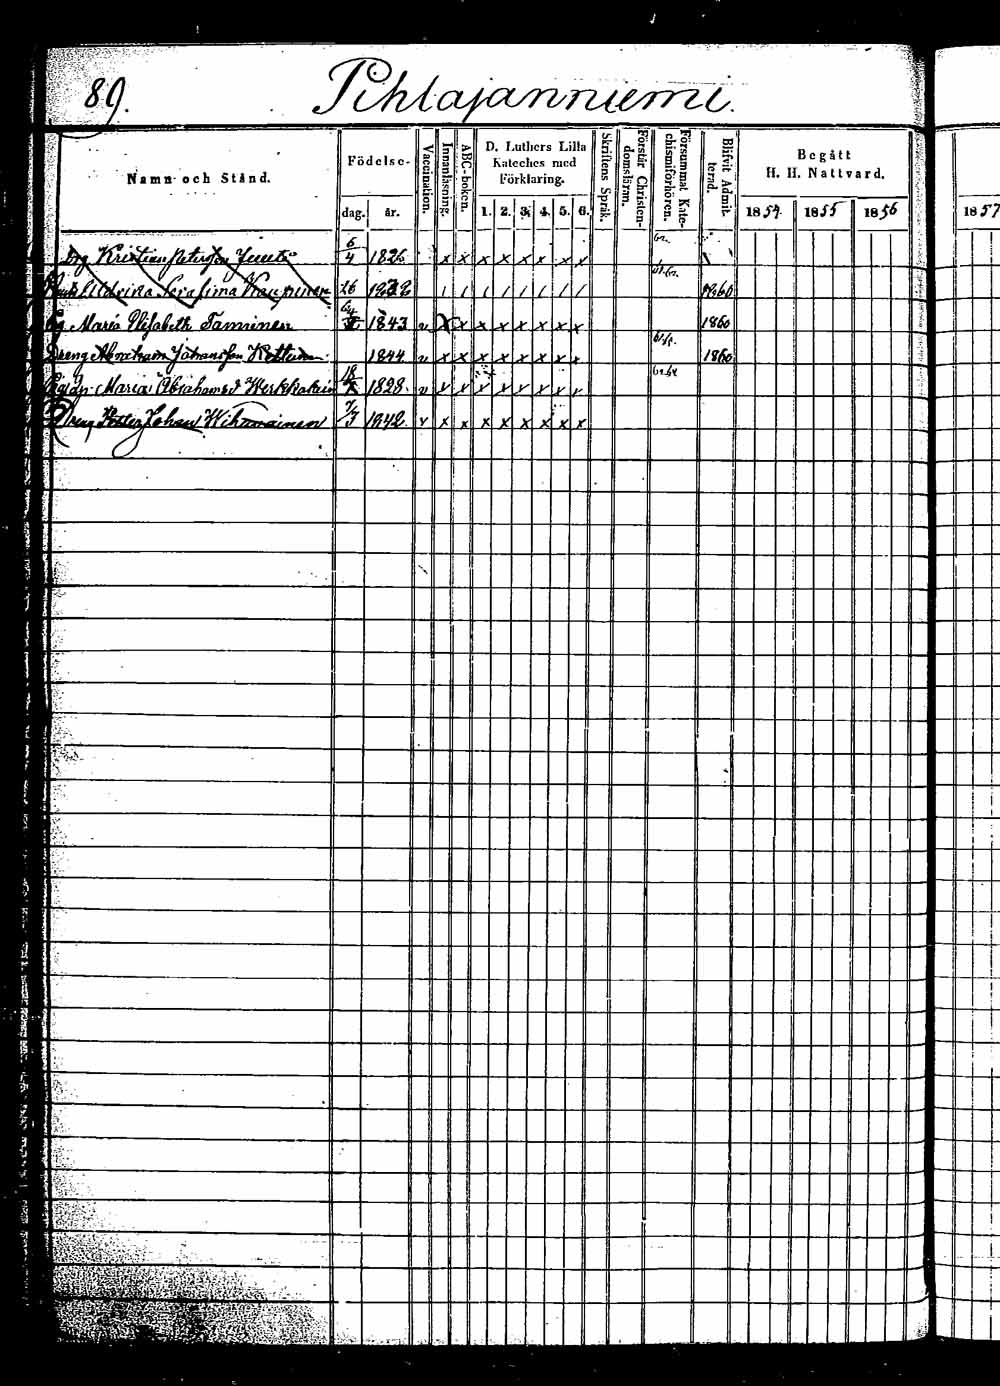 89.
Pihlajanniemi.
Namn och Stånd.
Födelse-
dag. år.
Vaccination.
Innanläsning.
ABC-boken.
D. Luthers Lilla
Kateches med
Förklaring.
1. 2. 3. 4. 5. 6.
Skriftens Språk.
Förstår Christen-
domsläran.
Försummat Kate-
chismiförhören.
Blifvit Admit-
terad.
Begått
H. H. Nattvard.
1854 1855 1856
1857
Kristian 6/4 1826 x x x x x x x x
Serafima 26 / / / / / / / / 1860
Maria Elisabeth Tanninen 1843 v x x x x x x x x 1860
Dreng Abraham Johansson 1844 v x x x x x x x x 1860
Maria Abrahamsd 18 1828 v x x x x x x x x
Dreng Petter Johan Wihavainen 7/3 1842 v x x x x x x x x